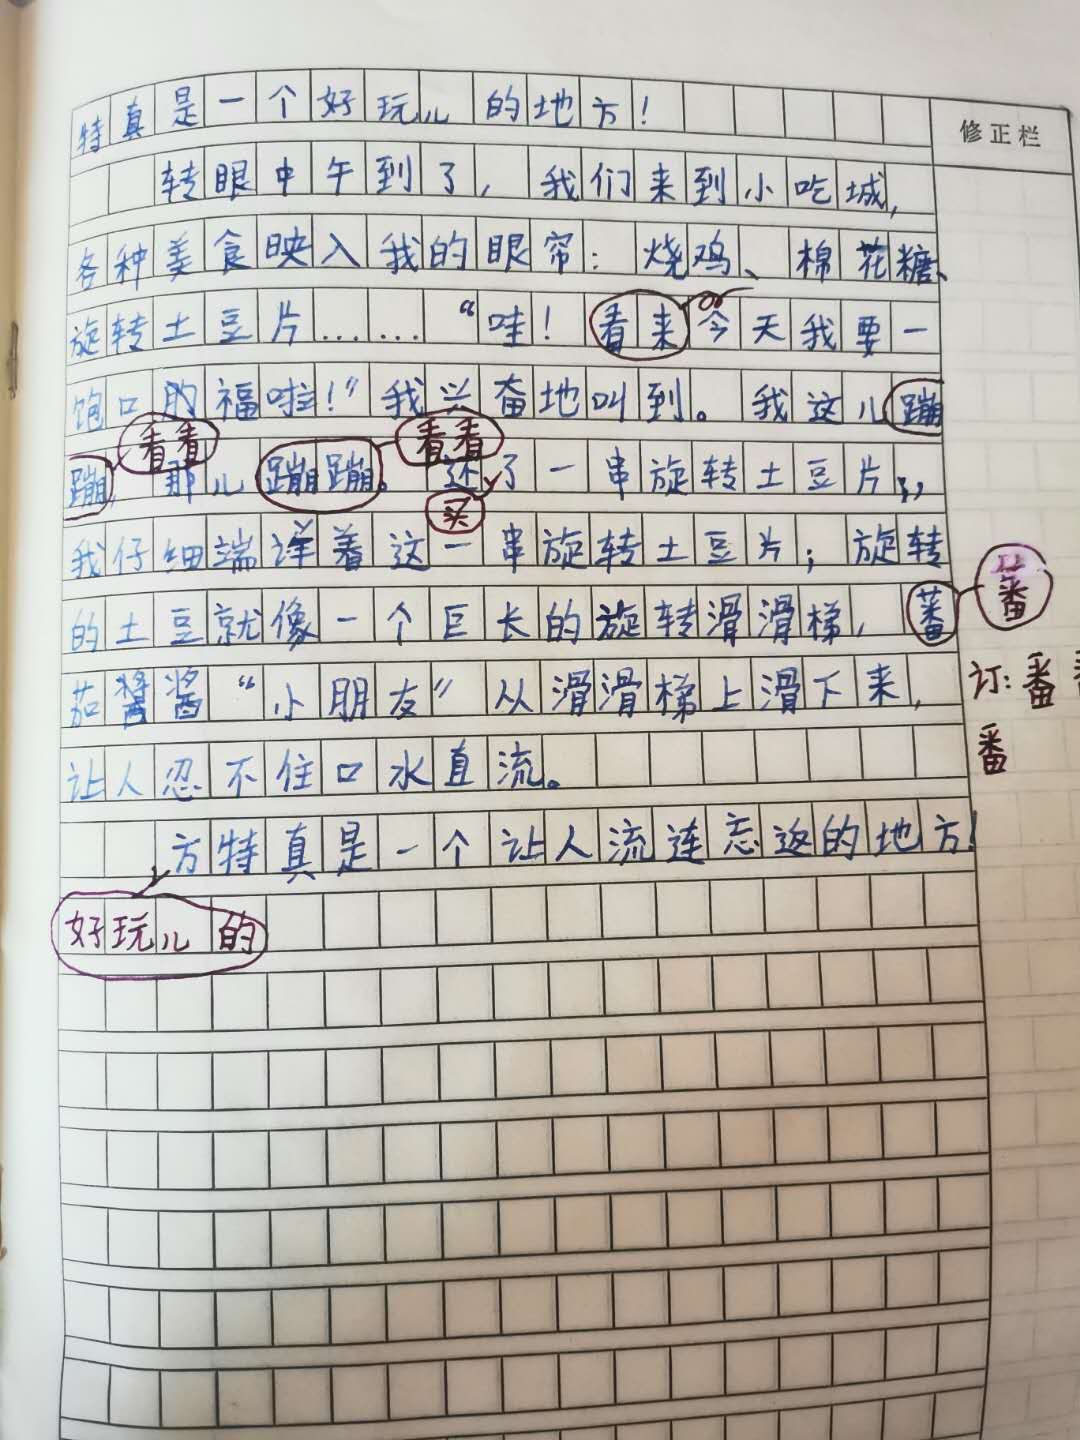 特真是一个好玩儿的地方！
修正栏
转眼中午到了，我们来到小吃城，
各种美食映入我的眼帘：烧鸡、棉花糖、
旋转土豆片……“哇！看来今天我要一
饱口的福啦！”我兴奋地叫到。我这儿蹦
看看 看看
蹦，那儿蹦蹦。还了一串旋转土豆片，
买
我仔细端详着这一串旋转土豆片；旋转
的土豆就像一个巨长的旋转滑滑梯，蕃
番
茄酱酱“小朋友”从滑滑梯上滑下来，
订：番
番
让人忍不住口水直流。
方特真是一个让人流连忘返的地方！
好玩儿的